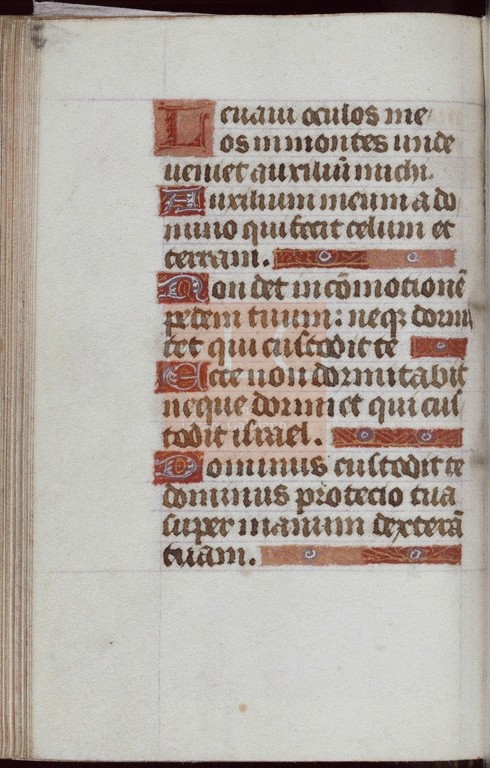 Leuaui oculos me/
os in montes unde
ueniet auxiliū michi.
Auxilium meum a do
mino qui fecit celum et
terram.
Non det in cōmotionē
pedem tuum: neqꝫ dormi
tet qui custodit te
Ecce non dormitabit
neque dormiet qui cus
todit israel.
Dominus custodit te
dominus protecio tua
super manum dexterā
tuam.